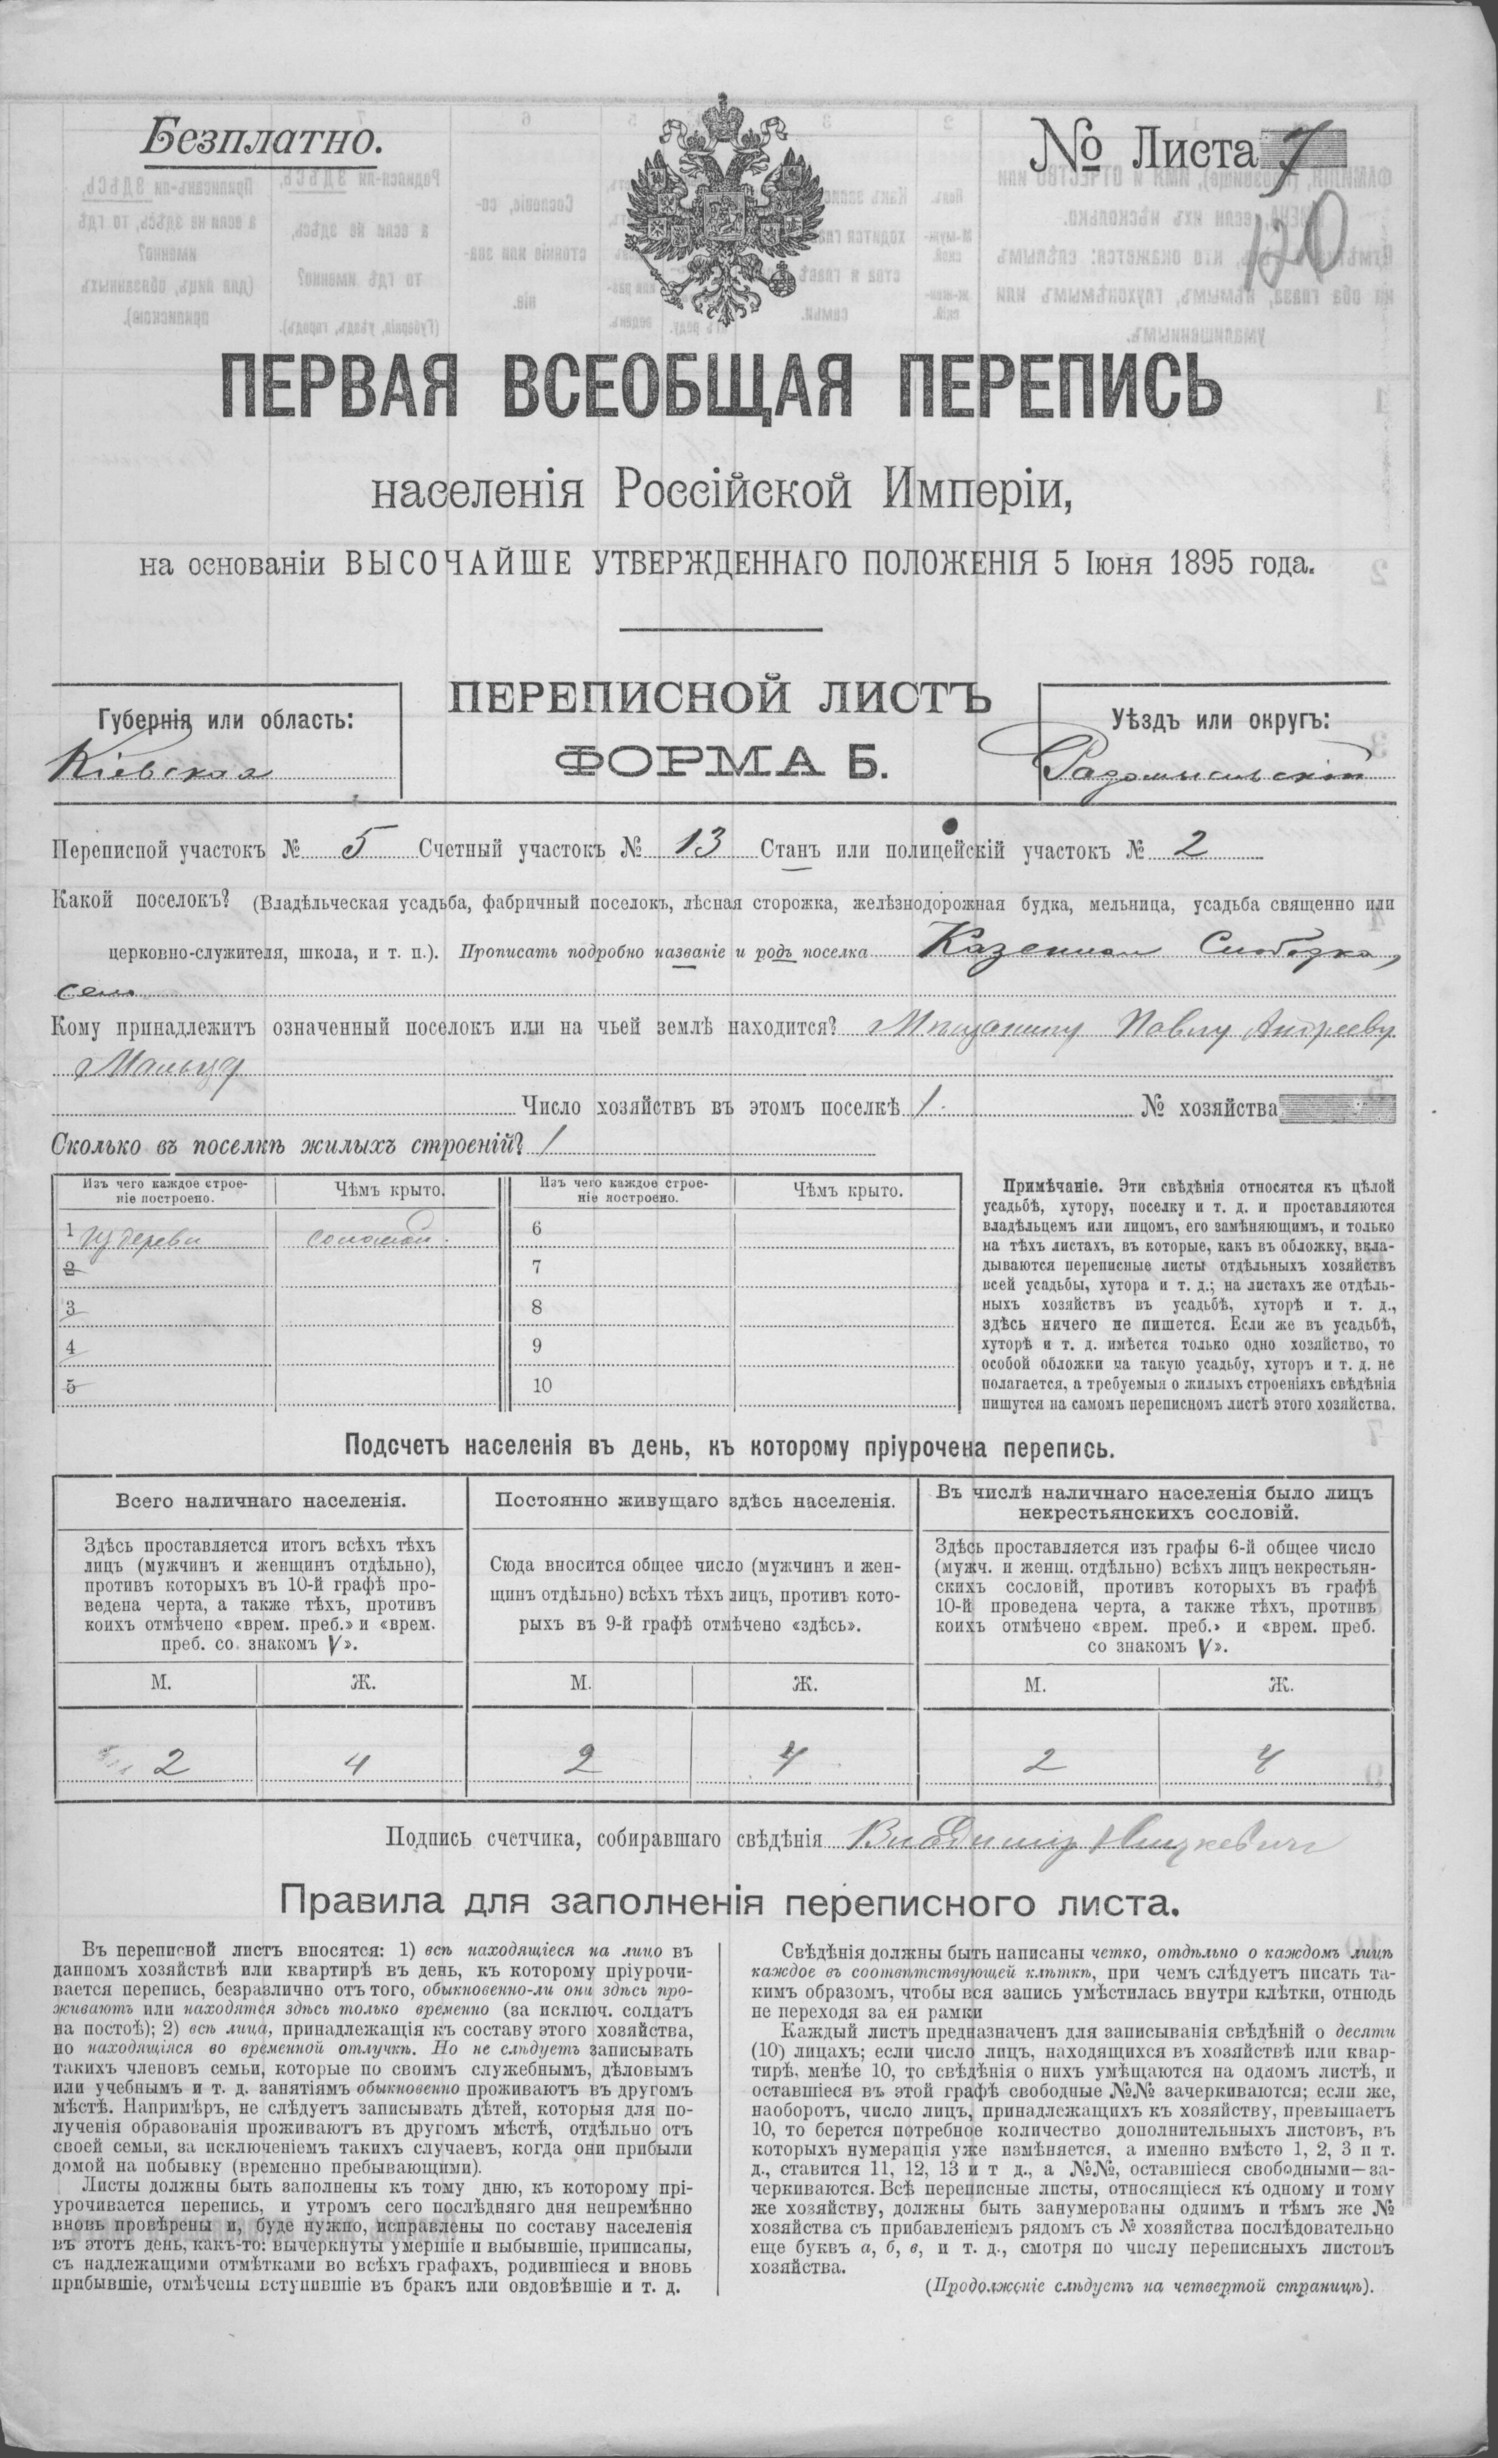 Безплатно.
№ Листа 7
120
ПЕРВАЯ ВСЕОБЩАЯ ПЕРЕПИСЬ
населенія Россійской Имперіи,
на основаніи ВЫСОЧАЙШЕ УТВЕРЖДЕННАГО ПОЛОЖЕНІЯ 5 Іюня 1895 года.
ПЕРЕПИСНОЙ ЛИСТЪ
ФОРМА Б.
Губернія или область:
Кіевская
Уѣздъ или округъ:
Радомысльскій
Переписной участокъ № 5 Счетный участокъ № 13 Станъ или полицейскій участокъ № 2
Какой поселокъ? (Владѣльческая усадьба, фабричный поселокъ, лѣсная сторожка, желѣзнодорожная будка, мельница, усадьба священно или
церковно-служителя, школа, и т. п.). Прописать подробно названіе и родъ поселка Казенная Слободка,
село
Кому принадлежитъ означенный поселокъ или на чьей землѣ находится? Мѣщанину Павлу Андрееву
Число хозяйствъ въ этомъ поселкѣ 1. № хозяйства
Сколько въ поселкѣ жилыхъ строеній? 1
Изъ чего каждое строе-
ніе построено.
Чѣмъ крыто.
Изъ чего каждое строе-
ніе построено.
Чѣмъ крыто.
1 Изъ дерева соломой. 6
2 7
3 8
4 9
5 10
Примѣчаніе. Эти свѣдѣнія относятся къ цѣлой
усадьбѣ, хутору, поселку и т. д. и проставляются
владѣльцемъ или лицомъ, его замѣняющимъ, и только
на тѣхъ листахъ, въ которые, какъ въ обложку, вкла-
дываются переписные листы отдѣльныхъ хозяйствъ
всей усадьбы, хутора и т. д.; на листахъ же отдѣль-
ныхъ хозяйствъ въ усадьбѣ, хуторѣ и т. д.,
здѣсь ничего не пишется. Если же въ усадьбѣ,
хуторѣ и т. д. имѣется только одно хозяйство, то
особой обложки на такую усадьбу, хуторъ и т. д. не
полагается, а требуемыя о жилыхъ строеніяхъ свѣдѣнія
пишутся на самомъ переписномъ листѣ этого хозяйства.
Подсчетъ населенія въ день, къ которому пріурочена перепись.
Всего наличнаго населенія.
Здѣсь проставляется итогъ всѣхъ тѣхъ
лицъ (мужчинъ и женщинъ отдѣльно),
противъ которыхъ въ 10-й графѣ про-
ведена черта, а также тѣхъ, противъ
коихъ отмѣчено «врем. преб.» и «врем.
преб. со знакомъ V».
М. Ж.
2 4
Постоянно живущаго здѣсь населенія.
Сюда вносится общее число (мужчинъ и жен-
щинъ отдѣльно) всѣхъ тѣхъ лицъ, противъ кото-
рыхъ въ 9-й графѣ отмѣчено «здѣсь».
М. Ж.
2 4
Въ числѣ наличнаго населенія было лицъ
некрестьянскихъ сословій.
Здѣсь проставляется изъ графы 6-й общее число
(мужч. и женщ. отдѣльно) всѣхъ лицъ некрестьян-
скихъ сословій, противъ которыхъ въ графѣ
10-й проведена черта, а также тѣхъ, противъ
коихъ отмѣчено «врем. преб.» и «врем. преб.
со знакомъ V».
М. Ж.
2 4
Подпись счетчика, собиравшаго свѣдѣнія Владиміръ
Правила для заполненія переписного листа.
Въ переписной листъ вносятся: 1) всѣ находящіеся на лицо въ
данномъ хозяйствѣ или квартирѣ въ день, къ которому пріурочи-
вается перепись, безразлично отъ того, обыкновенно-ли они здѣсь про-
живаютъ или находятся здѣсь только временно (за исключ. солдатъ
на постоѣ); 2) всѣ лица, принадлежащія къ составу этого хозяйства,
но находящіяся во временной отлучкѣ. Но не слѣдуетъ записывать
такихъ членовъ семьи, которые по своимъ служебнымъ, дѣловымъ
или учебнымъ и т. д. занятіямъ обыкновенно проживаютъ въ другомъ
мѣстѣ. Напримѣръ, не слѣдуетъ записывать дѣтей, которыя для по-
лученія образованія проживаютъ въ другомъ мѣстѣ, отдѣльно отъ
своей семьи, за исключеніемъ такихъ случаевъ, когда они прибыли
домой на побывку (временно пребывающими).
Листы должны быть заполнены къ тому дню, къ которому прі-
урочивается перепись, и утромъ сего послѣдняго дня непремѣнно
вновь провѣрены и, буде нужно, исправлены по составу населенія
въ этотъ день, какъ-то: вычеркнуты умершіе и выбывшіе, приписаны,
съ надлежащими отмѣтками во всѣхъ графахъ, родившіеся и вновь
прибывшіе, отмѣчены вступившіе въ бракъ или овдовѣвшіе и т. д.
Свѣдѣнія должны быть написаны четко, отдѣльно о каждомъ лицѣ
каждое въ соотвѣтствующей клѣткѣ, при чемъ слѣдуетъ писать та-
кимъ образомъ, чтобы вся запись умѣстилась внутри клѣтки, отнюдь
не переходя за ея рамки
Каждый листъ предназначенъ для записыванія свѣдѣній о десяти
(10) лицахъ; если число лицъ, находящихся въ хозяйствѣ или квар-
тирѣ, менѣе 10, то свѣдѣнія о нихъ умѣщаются на одномъ листѣ, и
оставшіеся въ этой графѣ свободные №№ зачеркиваются; если же,
наоборотъ, число лицъ, принадлежащихъ къ хозяйству, превышаетъ
10, то берется потребное количество дополнительныхъ листовъ, въ
которыхъ нумерація уже измѣняется, а именно вмѣсто 1, 2, 3 и т.
д., ставится 11, 12, 13 и т д., а №№, оставшіеся свободными—за-
черкиваются. Всѣ переписные листы, относящіеся къ одному и тому
же хозяйству, должны быть занумерованы однимъ и тѣмъ же №
хозяйства съ прибавленіемъ рядомъ съ № хозяйства послѣдовательно
еще буквъ а, б, в, и т. д., смотря по числу переписныхъ листовъ
хозяйства.
(Продолженіе слѣдуетъ на четвертой страницѣ).